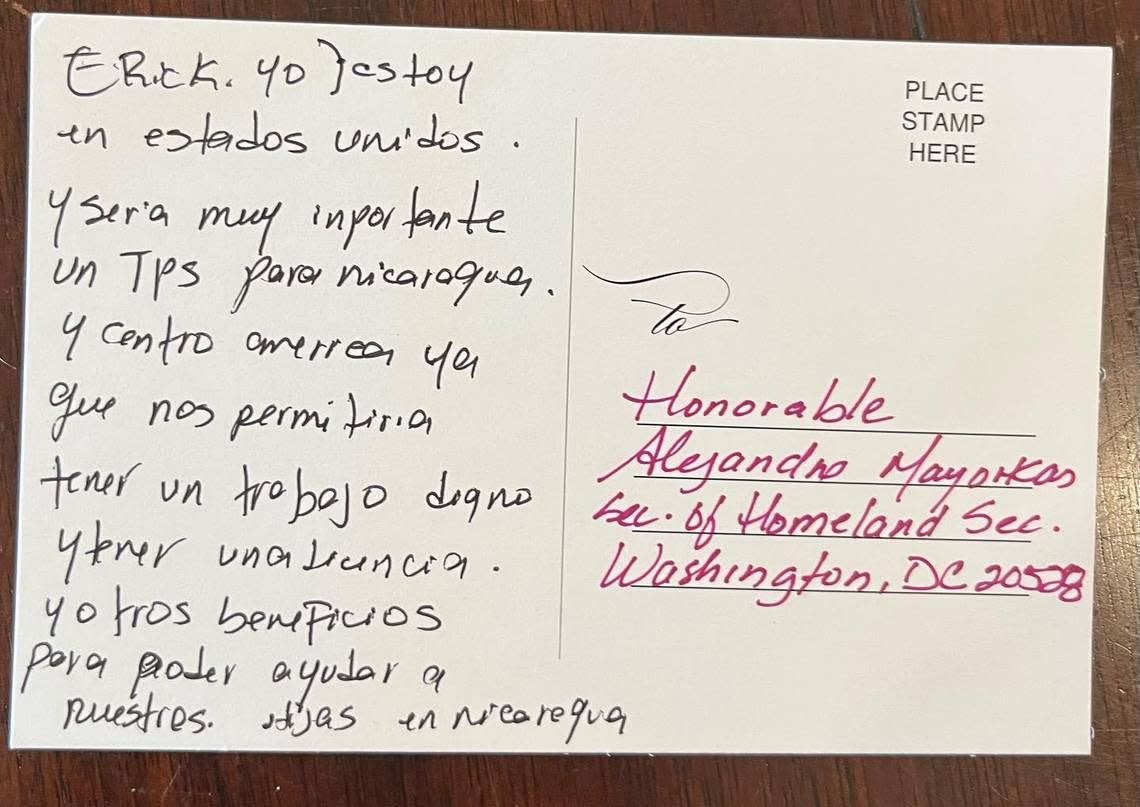 ERick. yo } estoy
en estados unidos.
y seria muy inportante
un TPS para nicaragua.
y centro america ya
que nos permitiria
tener un trabajo digno
y tener una licencia.
y otros beneficios
para poder ayudar a
nuestros. en nicaragua
PLACE
STAMP
HERE
to
Honorable
Alejandro Mayorkas
Sec. of Homeland Sec.
Washington, DC 20528